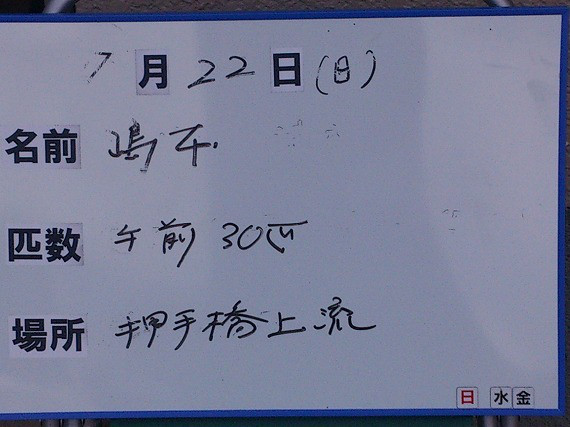 7月22日(日)
名前 嶋本
匹数 午前30匹
場所 押手橋上流
日 水 金